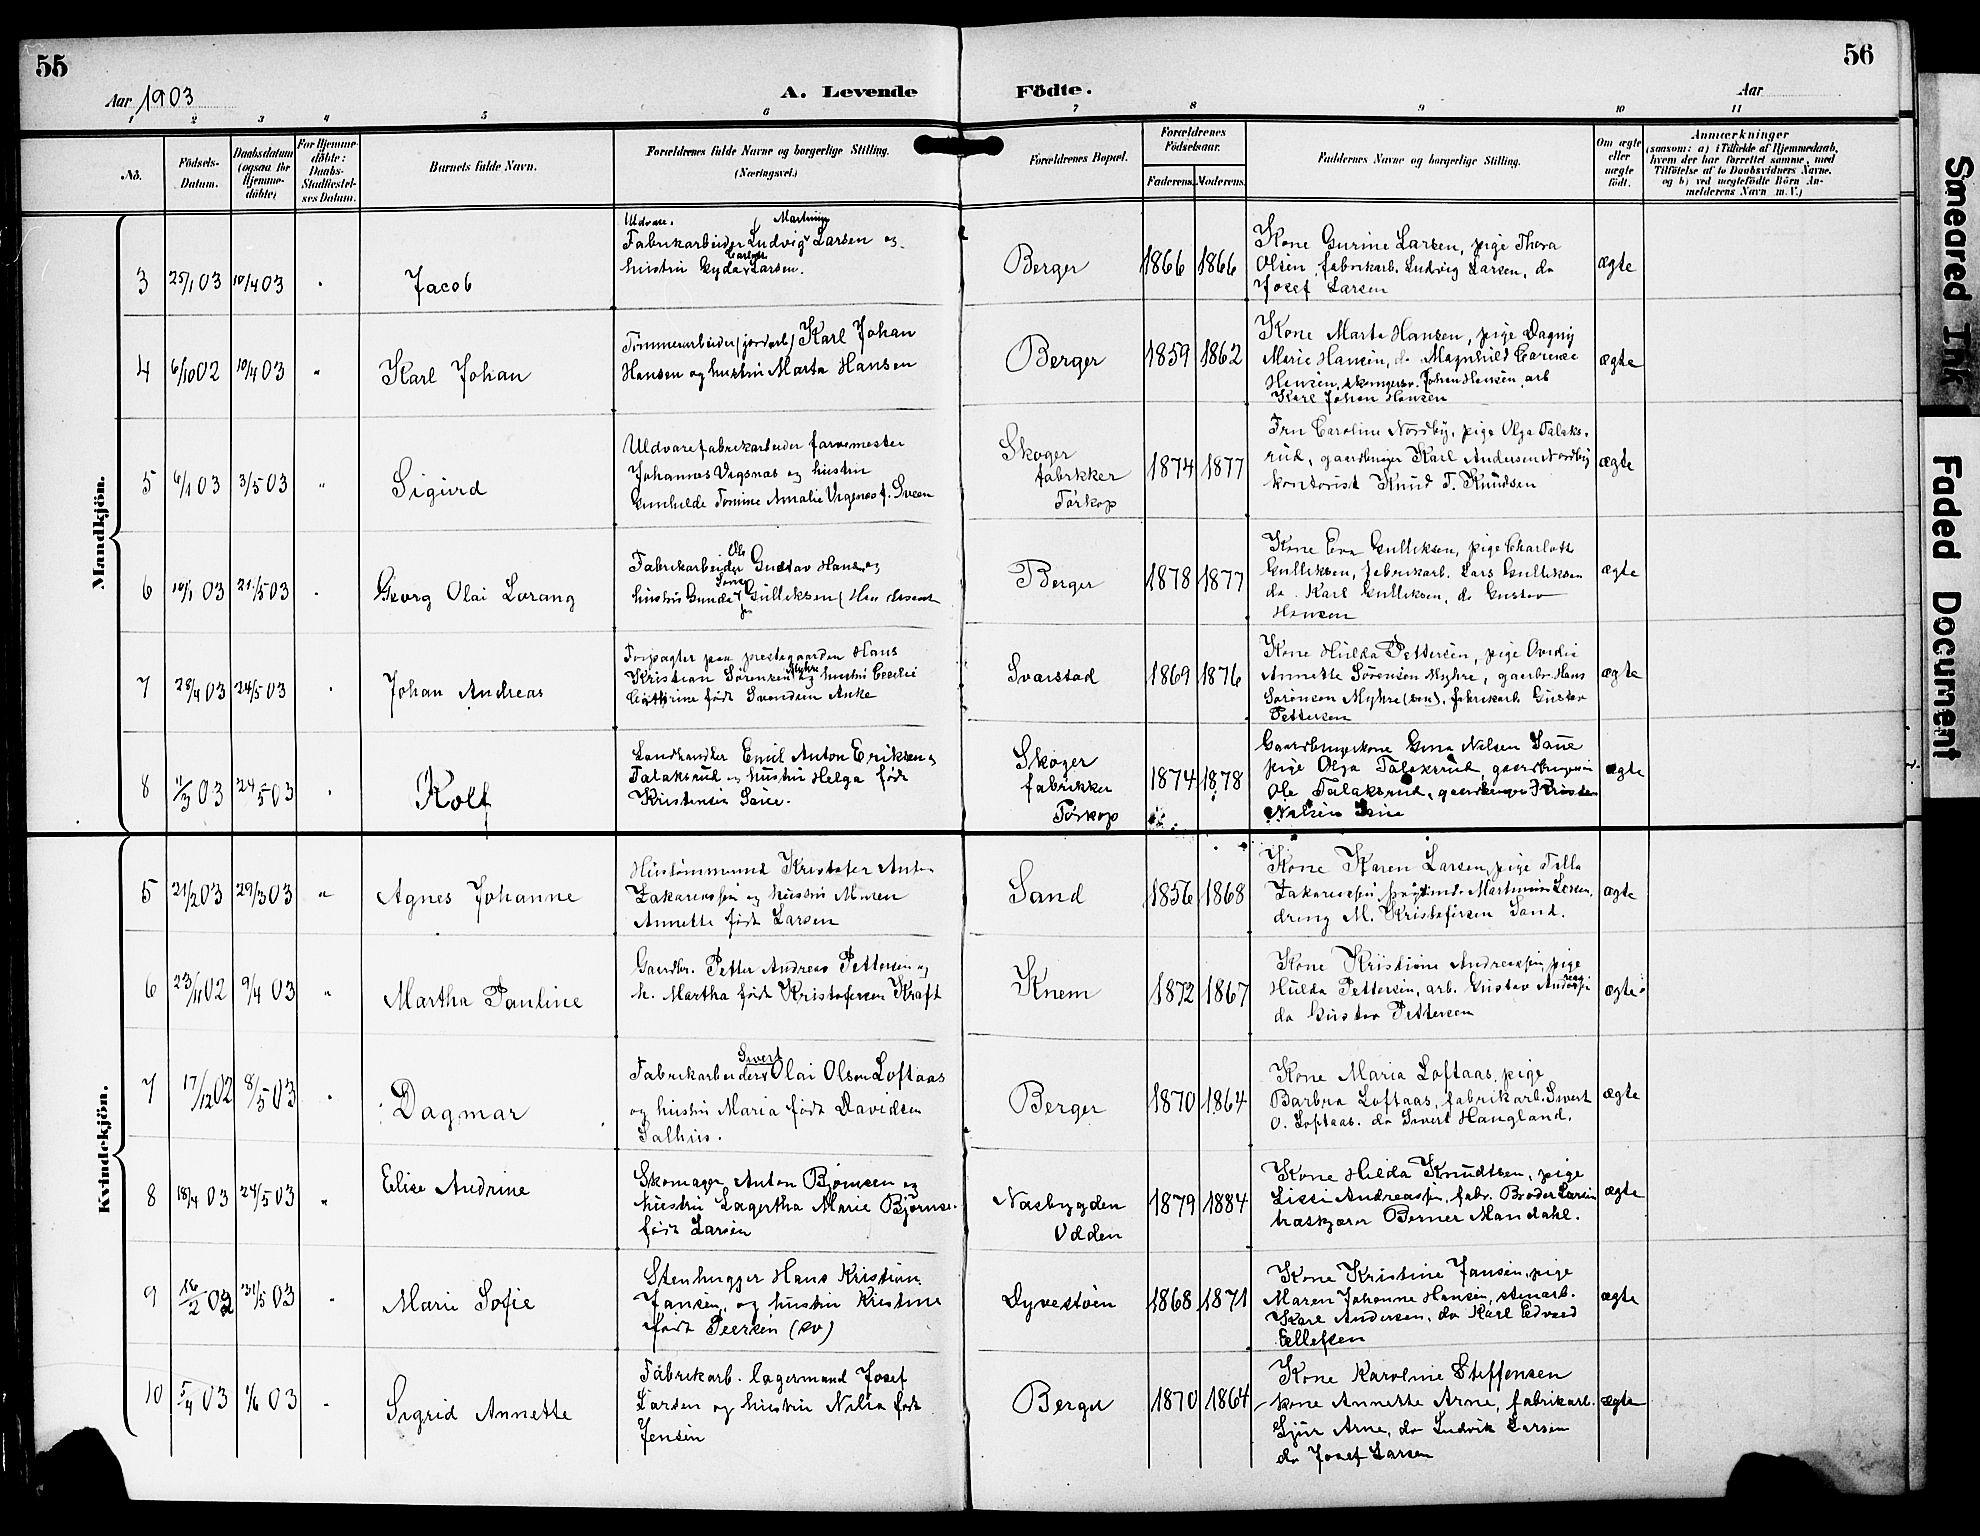 55
56
Aar 1903
A. Levende Födte.
Aar
1 2 3 4 5 6 7 8 9 10 11
No.
Födsels-
Datum.
Daabsdatum
(ogsaa for
Hjemme-
döbte)
For Hjemme-
döbte:
Daabs-
Stadfæstel-
ses Datum.
Barnets fulde Navn.
Forældrenes fulde Navne og borgerlige Stilling.
(Næringsvei.)
Forældrenes Bopæl.
Forældrenes
Födselsaar.
Faderens. Moderens.
Faddernes Navne og borgerlige Stilling.
Om ægte
eller
uægte
födt.
Anmærkninger
(saasom: a) i Tilfælde af Hjemmedaab,
hvem der har forrettet samme, med
Tilföielse af to Daabsvidners Navne.
og b) ved uægtefödte Börn An-
melderens Navn m. V.)
Mandkjön.
3 25/1 03 10/4 03 Jacob
Uldvare. Martinius
Fabrikarbeider Ludvig Larsen og
hustru Gyda Larsen.
Berger 1866 1866
Kone Gurine Larsen, pige Thora
Olsen, fabrikarb. Ludvig Larsen, do
Josef Larsen
ægte
4 6/10 02 10/4 03 Karl Johan
Tømmerarbeider (jordarb) Karl Johan
Hansen og hustru Marta Hansen
Berger 1859 1862
Kone Marta Hansen, pige Dagny
Marie Hansen, do Magnhild
Hansen, Johan Hansen, arb
Karl Johan Hansen
ægte
5 6/1 03 3/5 03 " Sigurd
Uldvarefabrikarbeider farvemester
Johannes Vegsnæs og hustru
Gunhilde Tomine Amalie Vegsnes f. Sveen
Skoger
fabrikker
Tørkop
1874 1877
Fru Caroline Nordby, pige Olga Talaks-
rud, gaardbruger Karl Andersen Nordby
kontorist Knud T. Knudsen
ægte
6 10/1 03 21/5 03 Georg Olai Lorang
Ole
Fabrikarbeider Gustav Hansen
hustru Gunda Gulliksen
Berger 1878 1877
Kone Eva Gulliksen, pige Charlotte
Gulliksen, fabrikarb. Lars Gulliksen
do. Karl Gulliksen, do Gustav
Hansen
ægte
7 29/4 03 24/5 03 Johan Andreas
Forpagter paa prestegaarden Hans
Kristian Sørensen Myhre og hustru Cecilie
Cathrine født Svendsen Anke
Svarstad 1869 1876
Kone Hulda Pettersen, pige Ovidie
Annette Sørensen Myhre, gaardbr. Hans
Sørensen Myhre (sen), fabrikarb. Gustav
Pettersen
ægte
8 11/3 03 24/5 03 Rolf
Landhandler Emil Anton Eriksen
Talaksrud og hustru Helga født
Kristensen Saue.
Skoger
fabrikker
Tørkop
1874 1878
Gaardbrugerkone Gina Nelsen Saue
pige Olga Talaksrud, gaardbruger
Ole Talaksrud, gaardbruger Kristen
Nelsen Saue
ægte
Kvindekjön.
5 21/2 03 29/3 03 " Agnes Johanne
Hustømmermand Kristofer Anton
Zakariassen og hustru Maren
Annette født Larsen
Sand 1856 1868
Kone Karen Larsen, pige Tilla
Zakariassen, Martinius Larsen,
dreng M. Kristofersen Sand.
ægte
6 23/11 02 9/4 03 " Martha Pauline
Gaardbr. Petter Andreas Pettersen og
h. Martha født Kristofersen Kraft
Knem 1872 1867
Kone Kristiane Andreassen, pige
Hulda Pettersen, arb. Gustav Andreassen
do Gustav Pettersen
ægte
7 17/12 02 8/5 03 Dagmar
Sivert
Fabrikarbeider Olai Olsen Loftaas
og hustru Maria født Davidsen
Salhus.
Berger 1870 1864
Kone Maria Loftaas, pige
Barbra Loftaas, fabrikarb. Sivert
O. Loftaas. do Sivert Haugland.
ægte
8 18/4 03 24/5 03 " Elise Andrine
Skomager Anton Bjørnsen og
hustru Lagertha Marie Bjørnse-
født Larsen
Næsbygden
Odden
1879 1884
Kone Hilda Knudtsen, pige
Lissi Andreassen, fabr. Broder Larsen
træskjærer Berner Mandahl.
ægte
9 16/2 03 31/5 03 Marie Sofie
Stenhugger Hans Kristian
Jansen, og hustru Kristine
født Peersen (sv)
Dyvestøen 1868 1871
Kone Kristine Jansen, pige
Maren Johanne Hansen, stenarb.
Karl Andersen, do Karl Edvard
Ellefsen
ægte
10 5/4 03 1/6 03 Sigrid Annette
Fabrikarb. lagermand Josef
Larsen og hustru Nilia født
Jensen
Berger 1870 1864
Kone Karoline Steffensen
kone Annette Arne, fabrikarb.
Sjur Arne, do Ludvik Larsen
do Josef Larsen
ægte
Smeared Ink
Faded Document